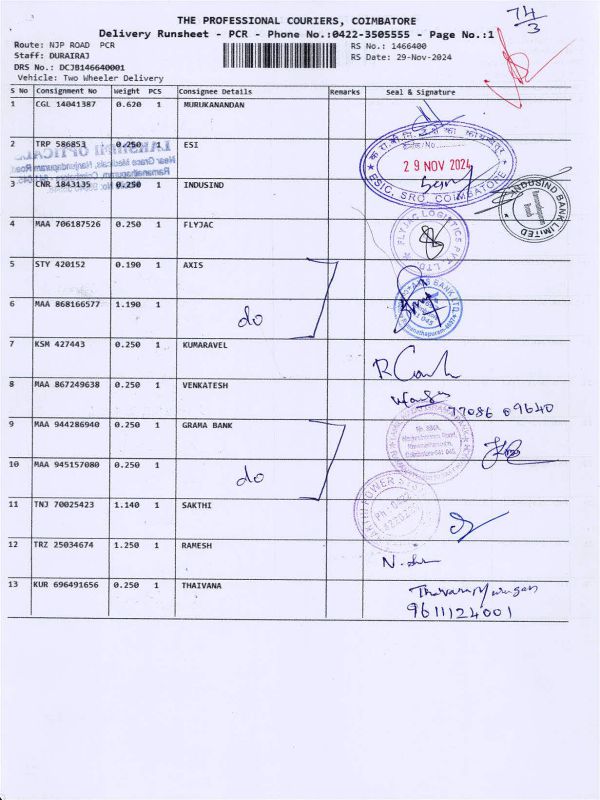 74
3
THE PROFESSIONAL COURIERS, COIMBATORE
Delivery Runsheet - PCR - Phone No.:0422-3505555 - Page No.:1
Route: NJP ROAD PCR
RS No.: 1466400
Staff: DURAIRAJ
RS Date: 29-Nov-2024
DRS No.: DCJB146640001
Vehicle: Two Wheeler Delivery
S No Consignment No Weight PCS Consignee Details Remarks Seal & Signature
1 CGL 14041387 0.620 1 MURUKANANDAN
2 TRP 586853 0.250 1 ESI
29 NOV 2024
ESIC, SRO, COIMBATORE
LAKSHMI OPTICALS
Near Grace Medicals, Nanjundapuram Road
Ramanathapuram, Coimbatore
3 CNR 1843135 0.250 1 INDUSIND
INDUSIND BANK LIMITED
4 MAA 706187526 0.250 1 FLYJAC
FLYJAC LOGISTICS PVT. LTD.
5 STY 420152 0.190 1 AXIS
AXIS BANK LTD.
6 MAA 868166577 1.190 1
do
7 KSM 427443 0.250 1 KUMARAVEL
8 MAA 867249638 0.250 1 VENKATESH
77086 09640
9 MAA 944286940 0.250 1 GRAMA BANK
10 MAA 945157080 0.250 1
do
11 TNJ 70025423 1.140 1 SAKTHI
12 TRZ 25034674 1.250 1 RAMESH
13 KUR 696491656 0.250 1 THAIVANA
9611124001